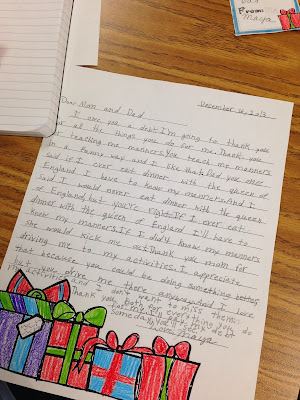 From:
Maya
December 16, 2013
Dear Mom and Dad
I owe you a debt. I'm going to thank you
for all the things you do for me. Thank you
for teaching me manners. You teach my manners
in a funny way and I like that. Dad you once
said if I ever eat dinner with the queen of
England I have to know my manners. And I
said I would never eat dinner with the queen
of England, but you're right. If I ever eat
dinner with the queen of England I'll have to
know my manners. If I didn't know my manners
she would kick me out. Thank you mom for
driving me to my activities. I appreciate
that because you could be doing something better,
but you drive me there anyway. And I love
my activities and I don't want to miss them.
Thank you both for everything you do
for me. I'll repay my debt
someday.
Love, Maya